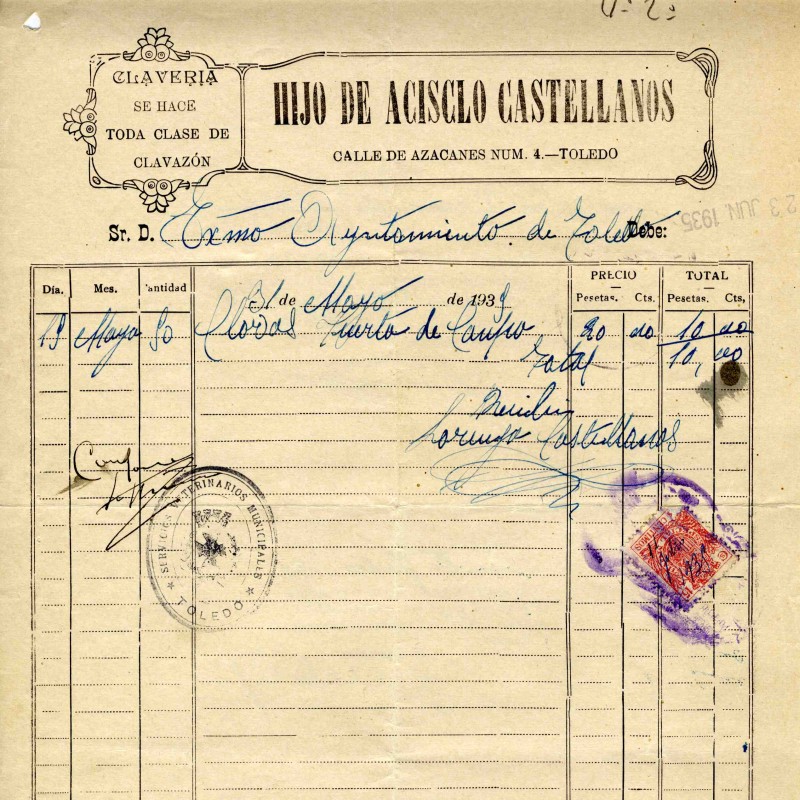 CLAVERIA
SE HACE
TODA CLASE DE
CLAVAZÓN
HIJO DE ACISCLO CASTELLANOS
CALLE DE AZACANES NUM. 4.—TOLEDO
23 JUN. 1935
Sr. D. Exmo Ayuntamiento de Toledo Debe:
Día. Mes. Cantidad PRECIO TOTAL
31 de Mayo de 1935 Pesetas. Cts. Pesetas. Cts,
19 Mayo 50 Clavos Puerta de 20 00 10 00
Total 10,00
Recibi
Lorenzo Castellanos
Conforme
SERVICIOS VETERINARIOS MUNICIPALES
TOLEDO